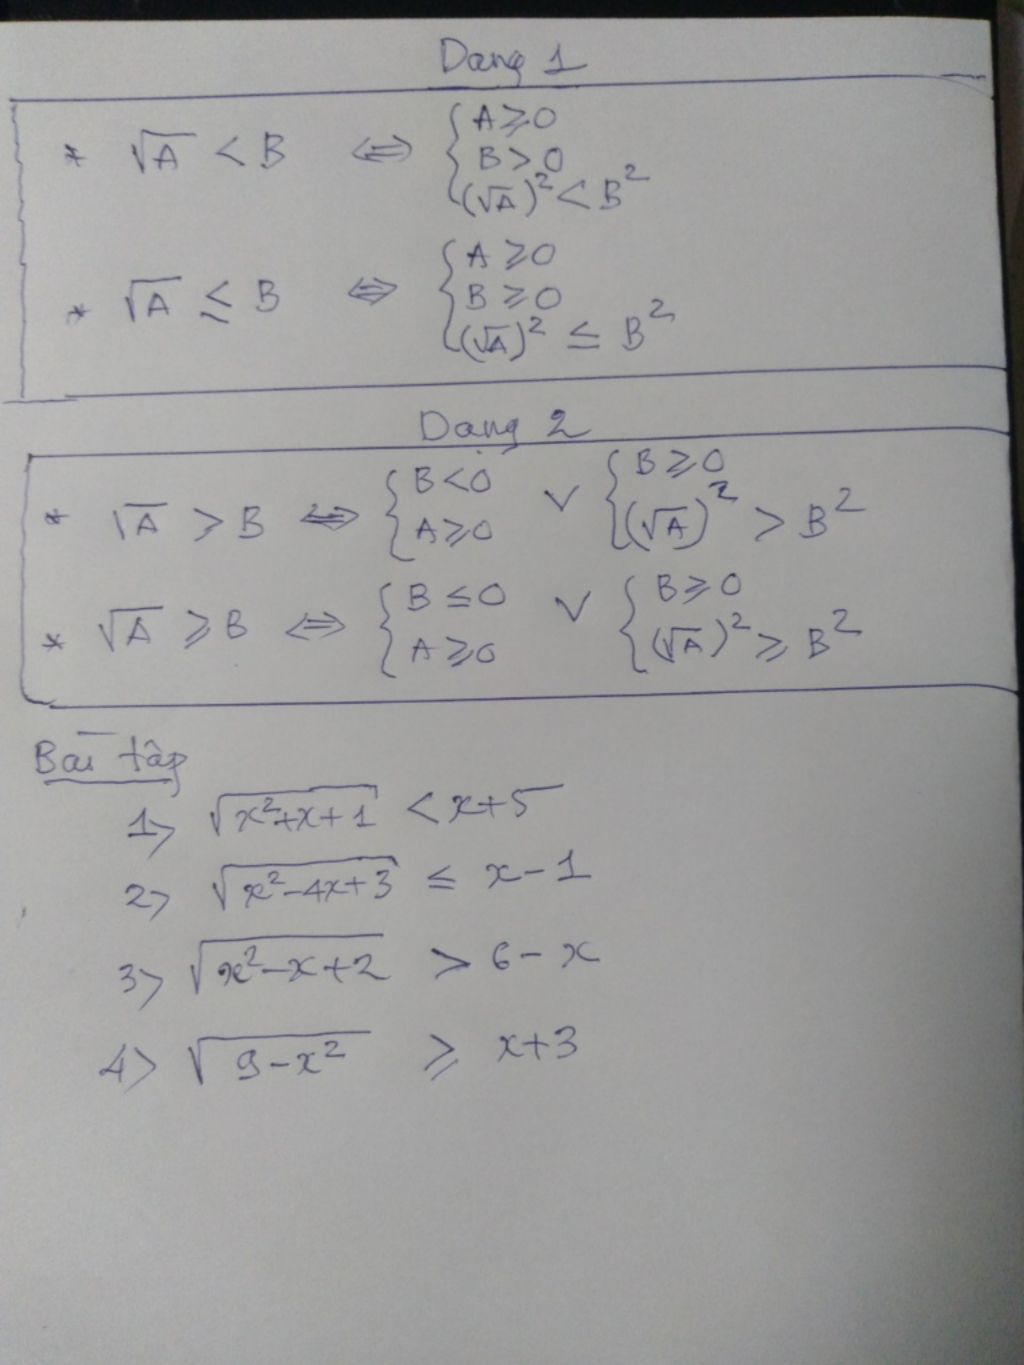 Dạng 1
* √A < B ⇔ { A ⩾ 0
B > 0
(√A)² < B²
* √A ≤ B ⇔ { A ⩾ 0
B ⩾ 0
(√A)² ≤ B²
Dạng 2
* √A > B ⇔ { B < 0 ∨ { B ⩾ 0
A ⩾ 0 (√A)² > B²
* √A ⩾ B ⇔ { B ≤ 0 ∨ { B ⩾ 0
A ⩾ 0 (√A)² ⩾ B²
Bài tập
1> √(x²+x+1) < x+5
2> √(x²-4x+3) ≤ x-1
3> √(x²-x+2) > 6-x
4> √(9-x²) ⩾ x+3